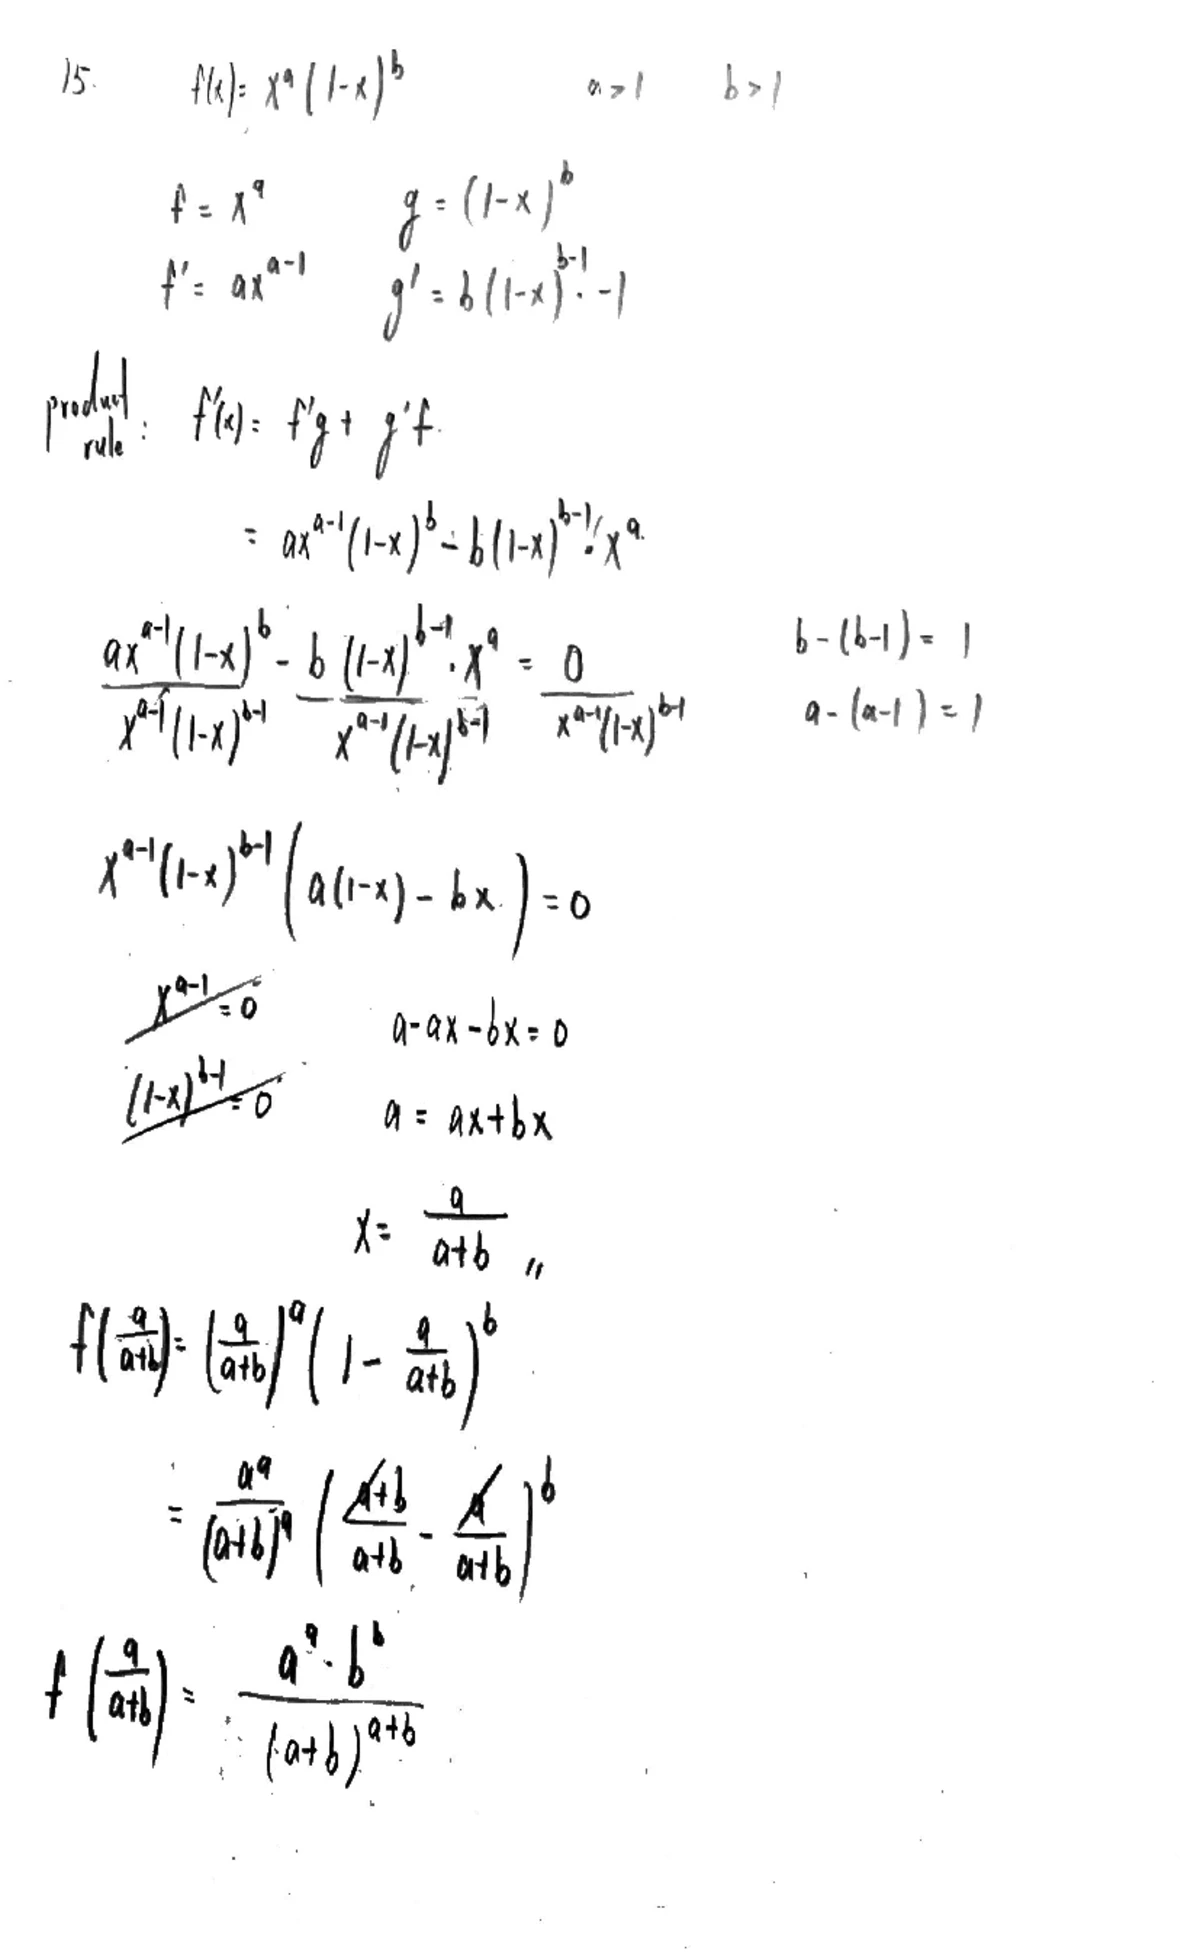 15. f(x)= x^a (1-x)^b a>1 b>1
f = x^a g = (1-x)^b
f' = ax^{a-1} g' = b(1-x)^{b-1} · -1
product rule : f'(x) = f'g + g'f
= ax^{a-1}(1-x)^b - b(1-x)^{b-1} · x^a
\frac{ax^{a-1}(1-x)^b}{x^{a-1}(1-x)^{b-1}} - \frac{b(1-x)^{b-1} · x^a}{x^{a-1}(1-x)^{b-1}} = \frac{0}{x^{a-1}(1-x)^{b-1}} b-(b-1) = 1
a-(a-1) = 1
x^{a-1}(1-x)^{b-1} ( a(1-x) - bx ) = 0
x^{a-1} = 0 a-ax-bx = 0
(1-x)^{b-1} = 0 a = ax+bx
x = \frac{a}{a+b} ,,
f(\frac{a}{a+b}) = (\frac{a}{a+b})^a ( 1 - \frac{a}{a+b} )^b
= \frac{a^a}{(a+b)^a} ( \frac{a+b}{a+b} - \frac{a}{a+b} )^b
f(\frac{a}{a+b}) = \frac{a^a · b^b}{(a+b)^{a+b}}